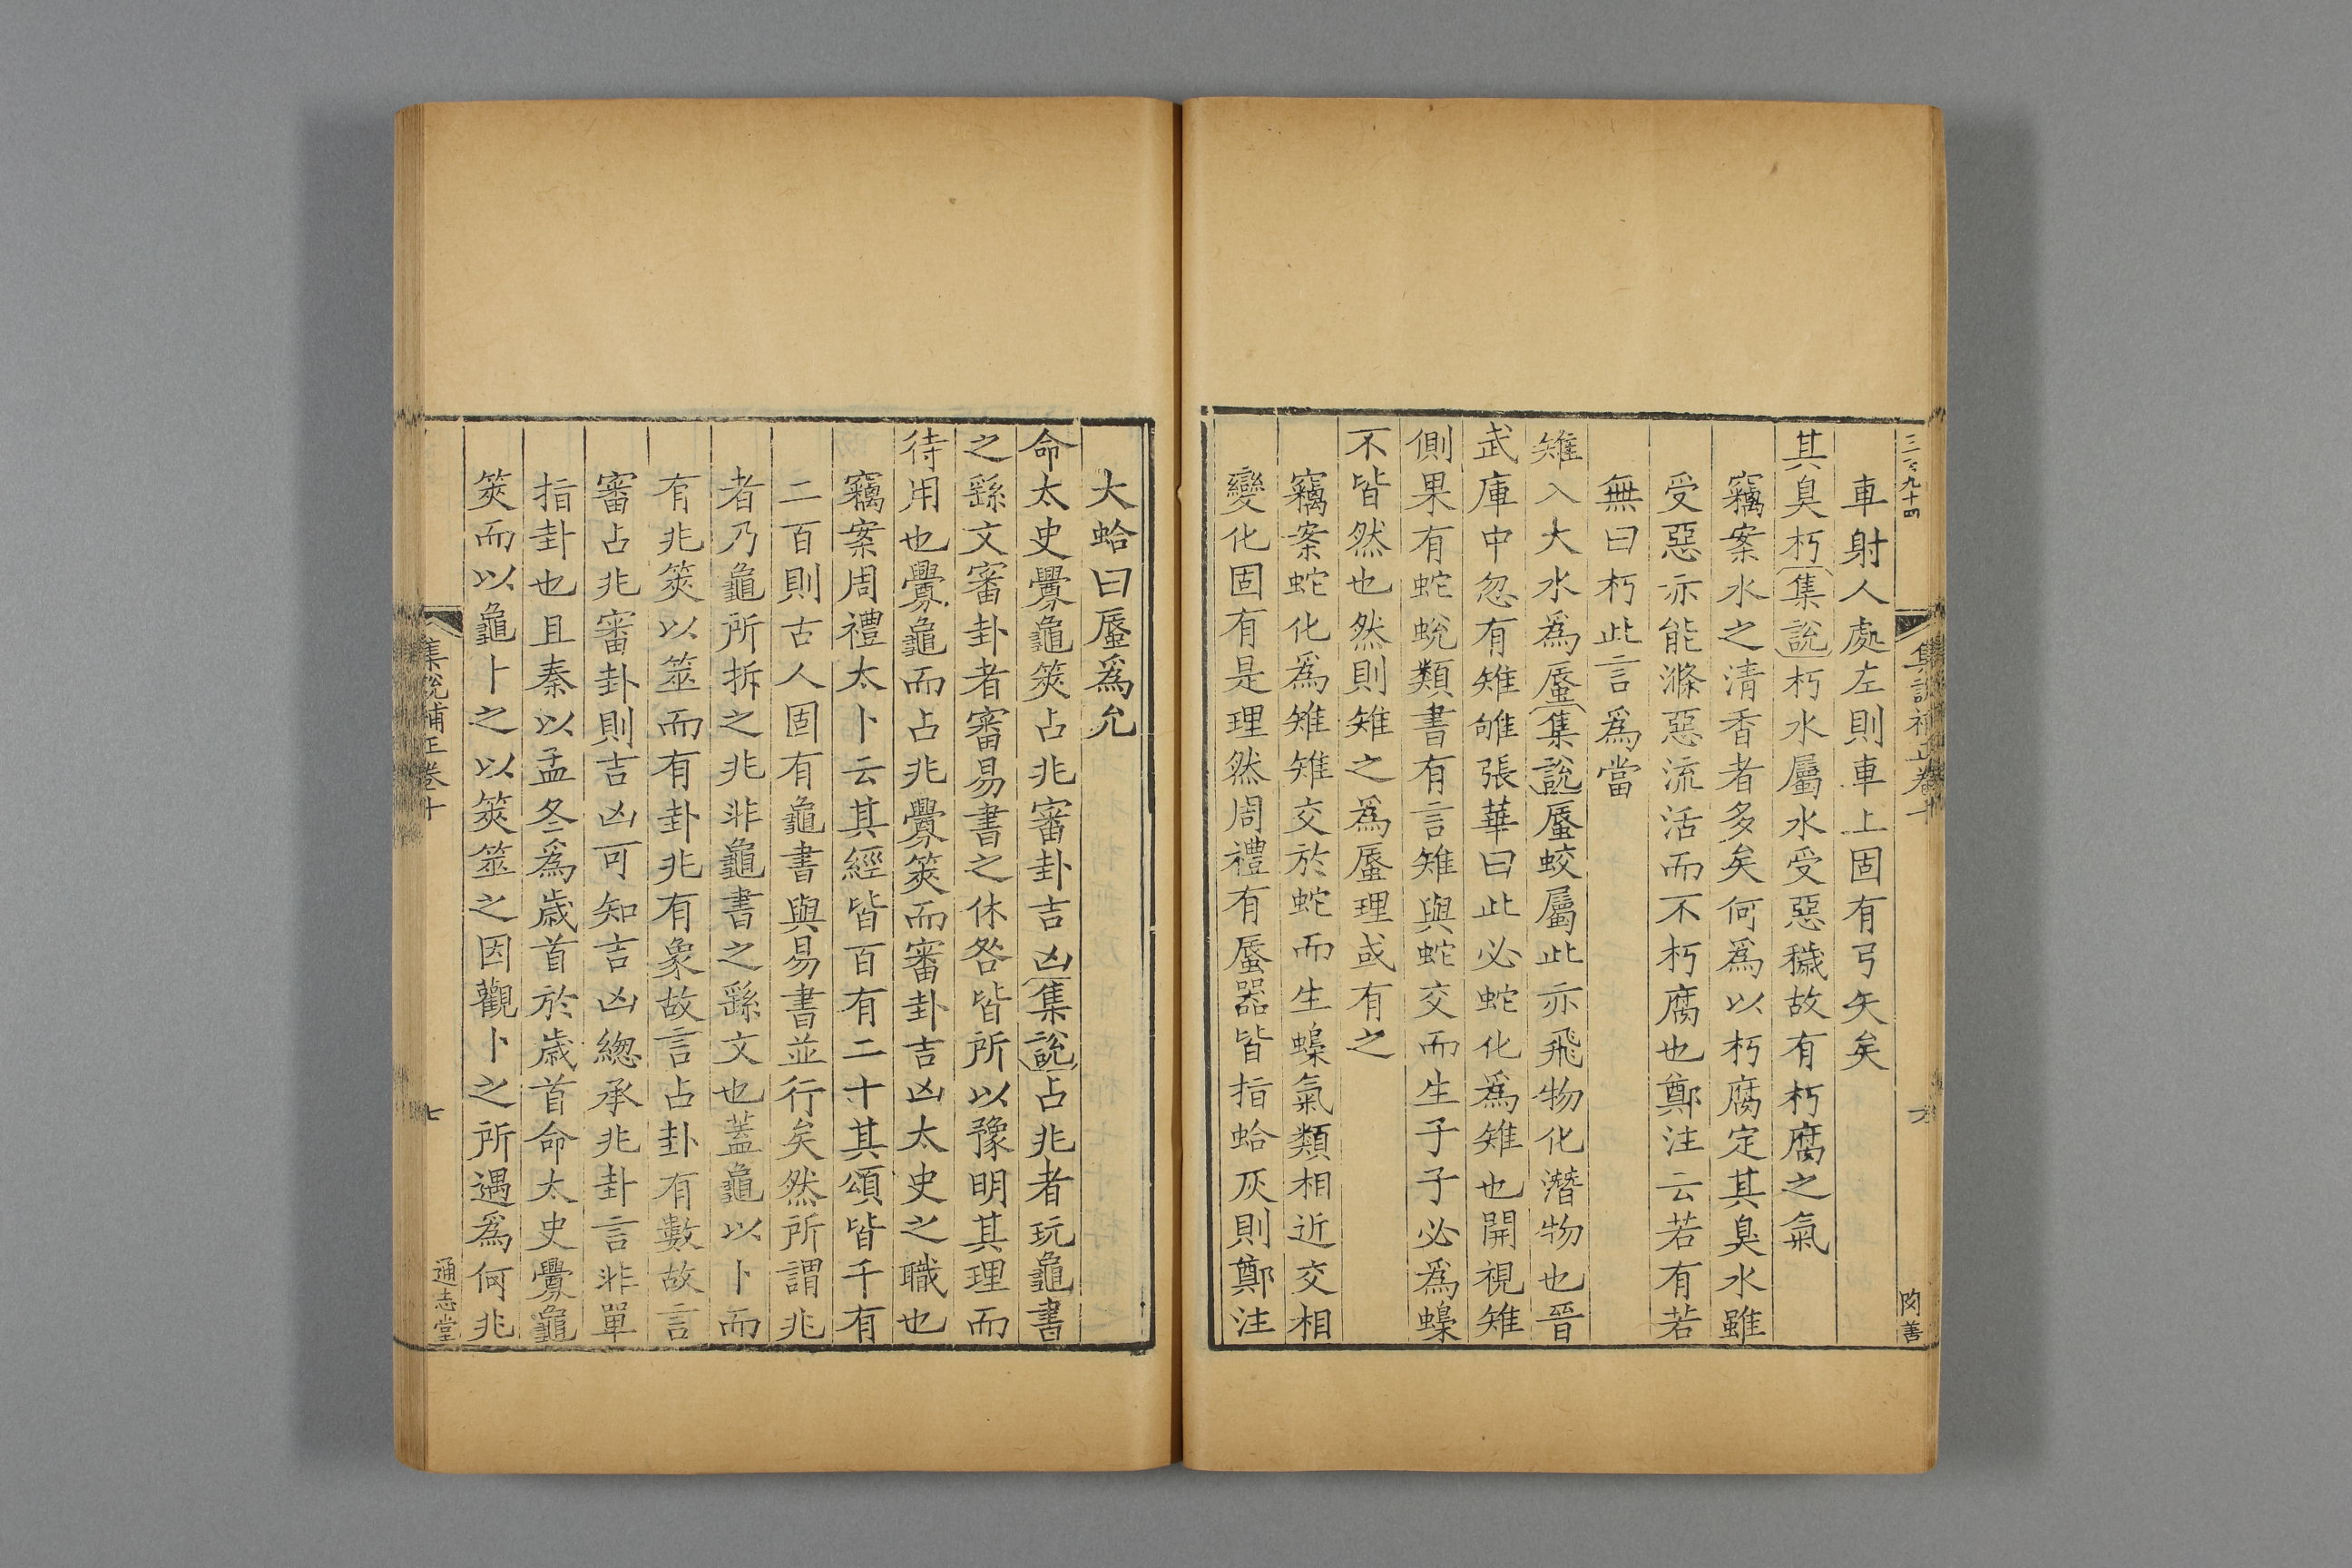 車射人處左則車上固有弓矢矣
其臭朽集說朽水屬水受惡穢故有朽腐之氣
竊案水之清香者多矣何為以朽腐定其臭水雖
受惡亦能滌惡流活而不朽腐也鄭注云若有若
無曰朽此言為當
雉入大水為蜃集說蜃蛟屬此亦飛物化潛物也晉
武庫中忽有雉雊張華曰此必蛇化為雉也開視雉
側果有蛇蛻類書有言雉與蛇交而生子子必為蟂
不皆然也然則雉之為蜃理或有之
竊案蛇化為雉雉交於蛇而生蟂氣類相近交相
變化固有是理然周禮有蜃器皆指蛤灰則鄭注
大蛤曰蜃為允
命太史釁龜筴占兆審卦吉凶集說占兆者玩龜書
之繇文審卦者審易書之休咎皆所以豫明其理而
待用也釁龜而占兆釁筴而審卦吉凶太史之職也
竊案周禮太卜云其經皆百有二十其頌皆千有
二百則古人固有龜書與易書並行矣然所謂兆
者乃龜所拆之兆非龜書之繇文也蓋龜以卜而
有兆筴以筮而有卦兆有象故言占卦有數故言
審占兆審卦則吉凶可知吉凶緫承兆卦言非單
指卦也且秦以孟冬為歲首於歲首命太史釁龜
筴而以龜卜之以筴筮之因觀卜之所遇為何兆
集說補正卷十
七
通志堂